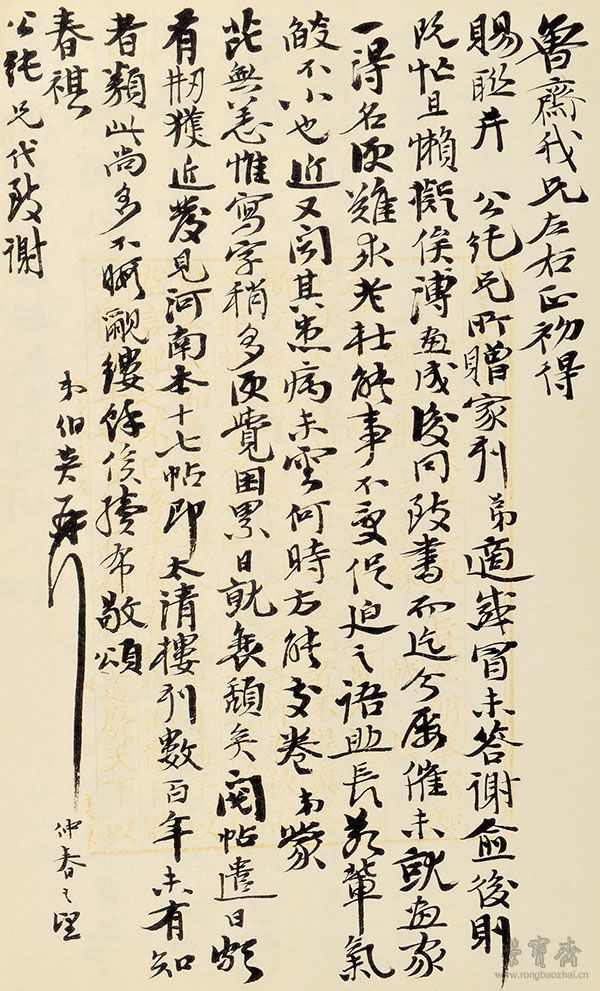 魯齋我兄左右正初得
賜聯并 公純兄所贈家刊弟適感冒未答謝愈後則
既忙且懶擬俟溥畫成後同致書而迄今屢催未就畫家
一得名便難求老杜能事不受促迫之語助長若輩氣
燄不小也近又聞其患病未審何時方能交卷弟蒙
茈無恙惟寫字稍多便覺困累日就衰頹矣閱帖遣日頗
有刱獲近發見河南本十七帖即太清樓刊數百年未有知
者類此尚多不暇覼縷餘俟續布敬頌
春祺
弟伯英
仲春之望
公純兄代致謝
榮寶齋
www.rongbaozhai.cn